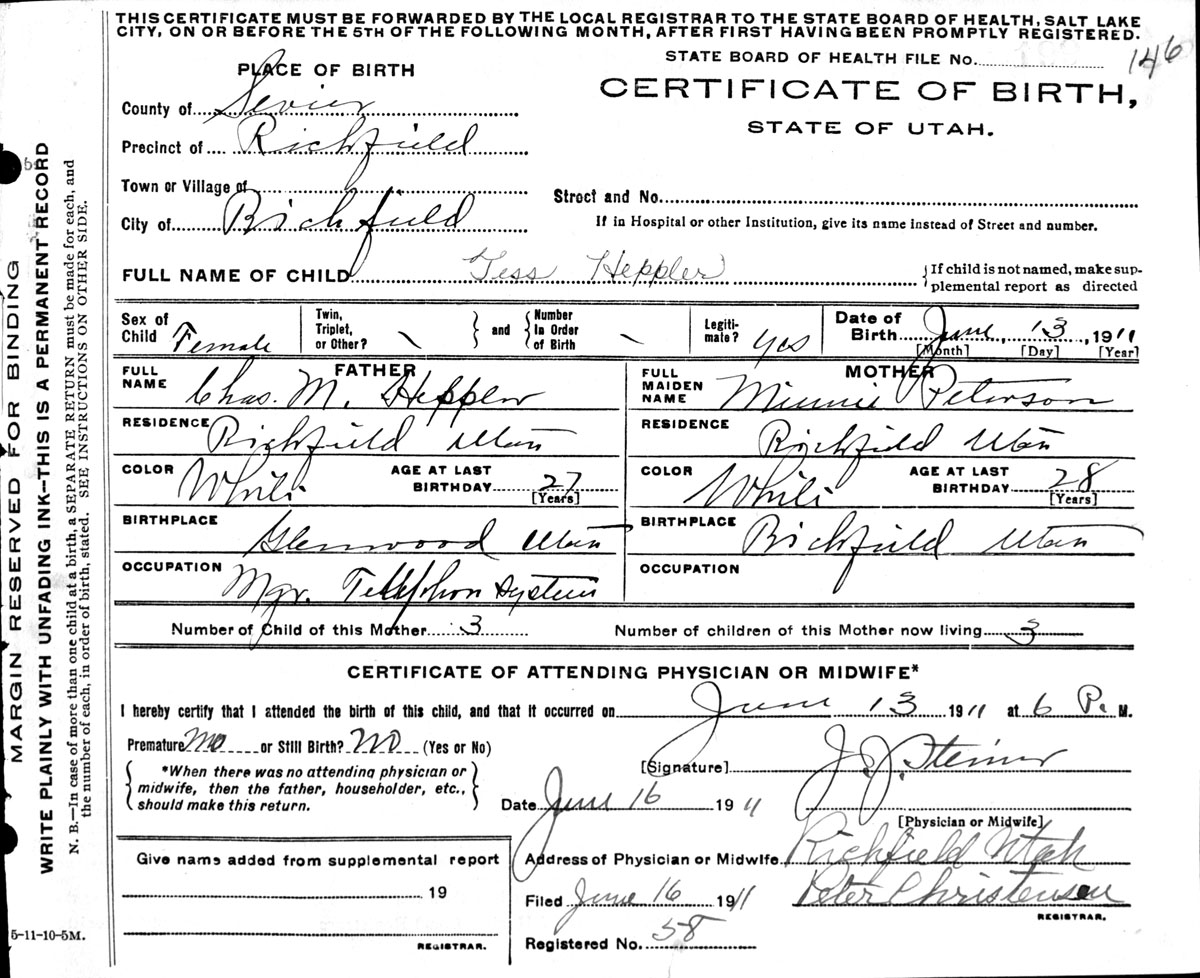 THIS CERTIFICATE MUST BE FORWARDED BY THE LOCAL REGISTRAR TO THE STATE BOARD OF HEALTH, SALT LAKE
CITY, ON OR BEFORE THE 5TH OF THE FOLLOWING MONTH, AFTER FIRST HAVING BEEN PROMPTLY REGISTERED.
STATE BOARD OF HEALTH FILE No. 146
PLACE OF BIRTH
CERTIFICATE OF BIRTH,
STATE OF UTAH.
County of Sevier
Precinct of Richfield
Town or Village of
Street and No.
City of Richfield
If in Hospital or other Institution, give its name instead of Street and number.
FULL NAME OF CHILD Tess Heppler
If child is not named, make sup-
plemental report as directed
Sex of Child Female
Twin, Triplet, or Other? \ and Number In Order of Birth \
Legiti-mate? yes
Date of Birth June 13 1911
[Month] [Day] [Year]
FATHER
FULL NAME Chas. M. Heppler
RESIDENCE Richfield Utah
COLOR White AGE AT LAST BIRTHDAY 27 [Years]
BIRTHPLACE Glenwood Utah
OCCUPATION Mgr. Telephon System
MOTHER
FULL MAIDEN NAME Minnie Peterson
RESIDENCE Richfield Utah
COLOR White AGE AT LAST BIRTHDAY 28 [Years]
BIRTHPLACE Richfield Utah
OCCUPATION
Number of Child of this Mother 3 Number of children of this Mother now living 3
CERTIFICATE OF ATTENDING PHYSICIAN OR MIDWIFE*
I hereby certify that I attended the birth of this child, and that it occurred on June 13 1911 at 6 P. M.
Premature No or Still Birth? No (Yes or No)
*When there was no attending physician or
midwife, then the father, householder, etc.,
should make this return.
[Signature] J. J. Steiner
Date June 16 1911
[Physician or Midwife]
Address of Physician or Midwife Richfield Utah
Filed June 16 1911 Peter Christensen
REGISTRAR.
Registered No. 58
Give name added from supplemental report
19
REGISTRAR.
5-11-10-5M.
MARGIN RESERVED FOR BINDING
WRITE PLAINLY WITH UNFADING INK—THIS IS A PERMANENT RECORD
N. B.—In case of more than one child at a birth, a SEPARATE RETURN must be made for each, and
the number of each, in order of birth, stated. SEE INSTRUCTIONS ON OTHER SIDE.